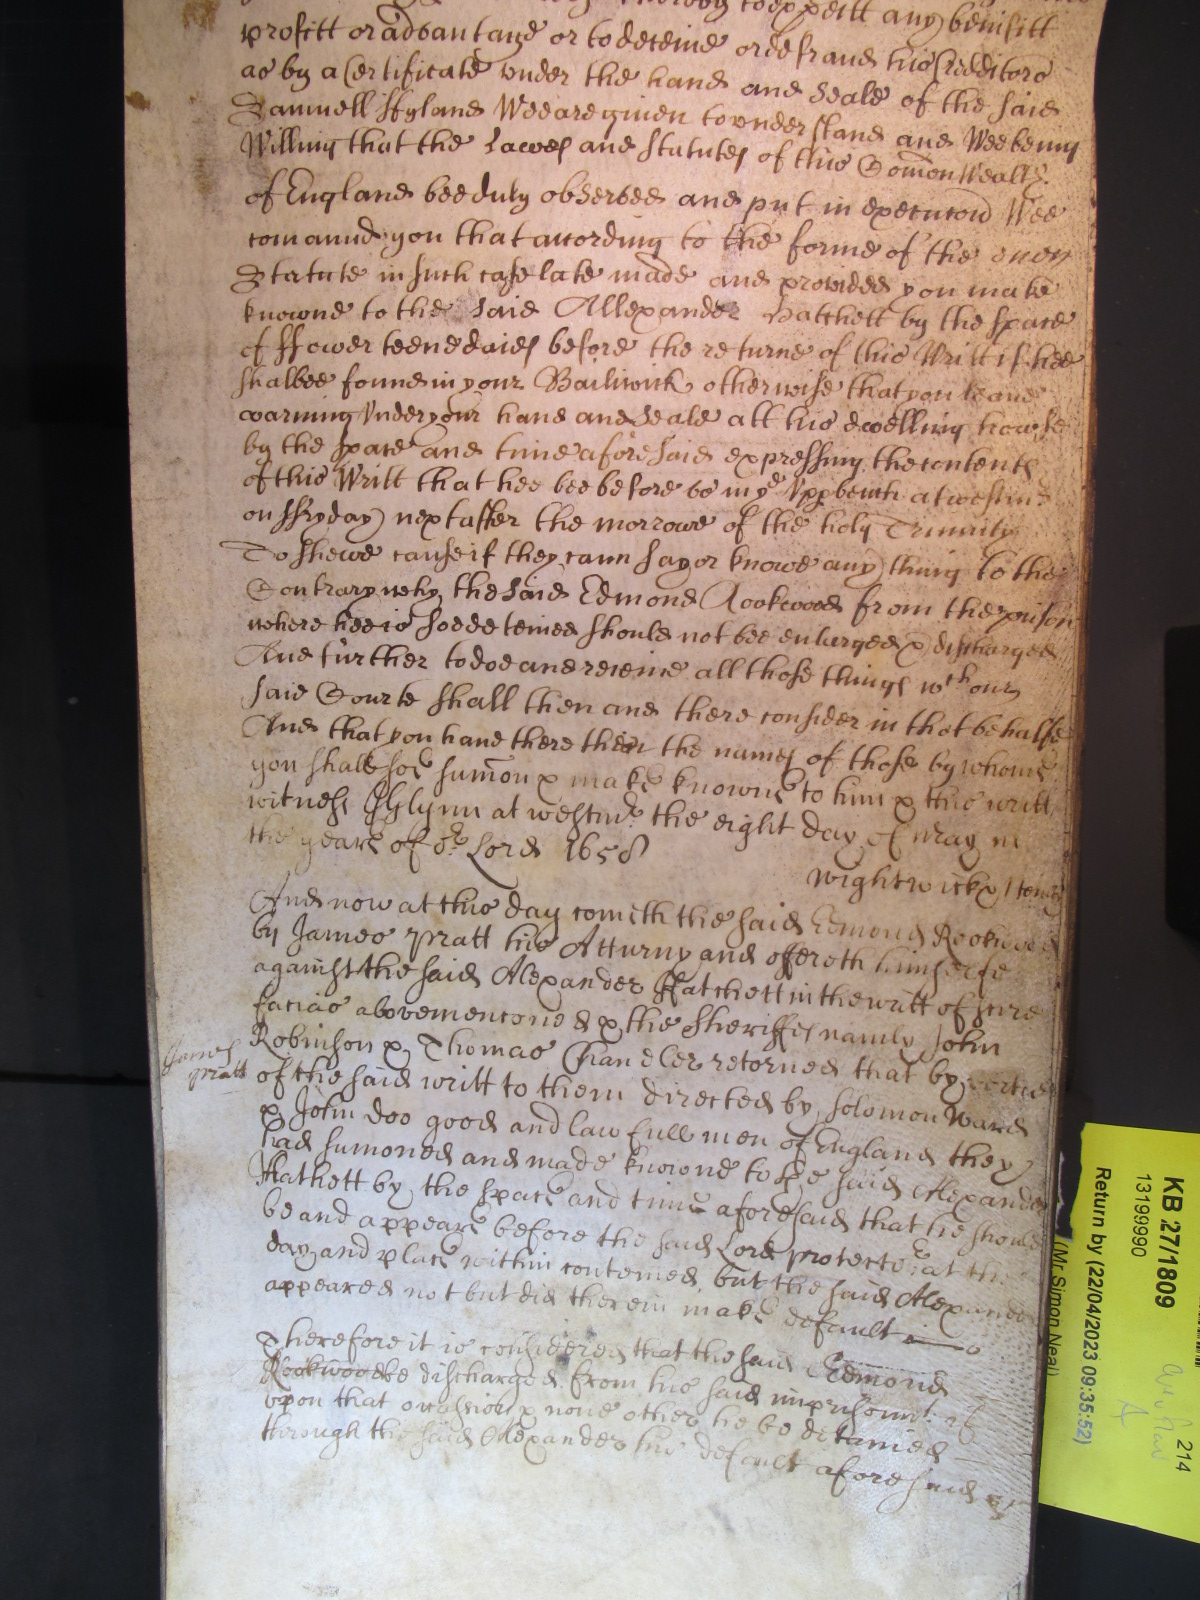 thereby to expectt any benifitt
profitt or advantage or to deceive or defraud his Creditors
as by a Certificate under the hand and Seale of the said
Samuell Hyland Wee are given to understand and Wee being
Willing that the Lawes and Statutes of this Comon Wealth
of England bee duly observed and put in execucon Wee
comannd you that according to the forme of the
Statute in such case late made and provided you make
knowne to the said Allexander Hatchett by the space
of ffowerteene daies before the returne of this Writt if hee
shalbee found in your Bailiwick otherwise that you leave
warning under your hand and Seale att his dwelling howse
by the space and time aforesaid expressing the contents
of this Writt that hee bee before us in ye Uppbench at Westmr
on ffryday next after the morrowe of the holy Trinnity
To shewe cause if they cann say or knowe any thing to the
Contrary why the said Edmond Rookwood from the prison
where hee is soe deteined should not bee enlarged & discharged
And further to doe and receive all those things wch our
said Courte shall then and there consider in that behalfe
And that you have there then the names of those by whome
you shall soe sumon & make knowne to him & this writt
witness J Glynn at westmr the eight day of May in
the yeare of or Lord 1658
Wightwick &
And now at this day cometh the said Edmond Rookwood
by James Pratt his Atturny and offereth himselfe
against the said Alexander Hatchett in the writt of scire
facias abovemencioned & the Sheriffes namly John
James
Pratt
Robinson & Thomas Chandler retorned that by vertue
of the said writt to them directed by Solomon Ward
& John Doo good and lawfull men of England they
had sumoned and made knowne to the said Alexander
Hathett by the space and time aforesaid that he should
be and appeare before the said Lord protector at the
day and place within conteined but the said Alexander
appeared not but did therein make default
Therefore it is considered that the said Edmond
Rookwood be discharged from his said imprisonmt &
upon that occassion & none other he be detained
through the said Alexander his default aforesaid &
KB 27/1809
13199990
Return by (22/04/2023 09:35:52)
(Mr Simon Neal)
214